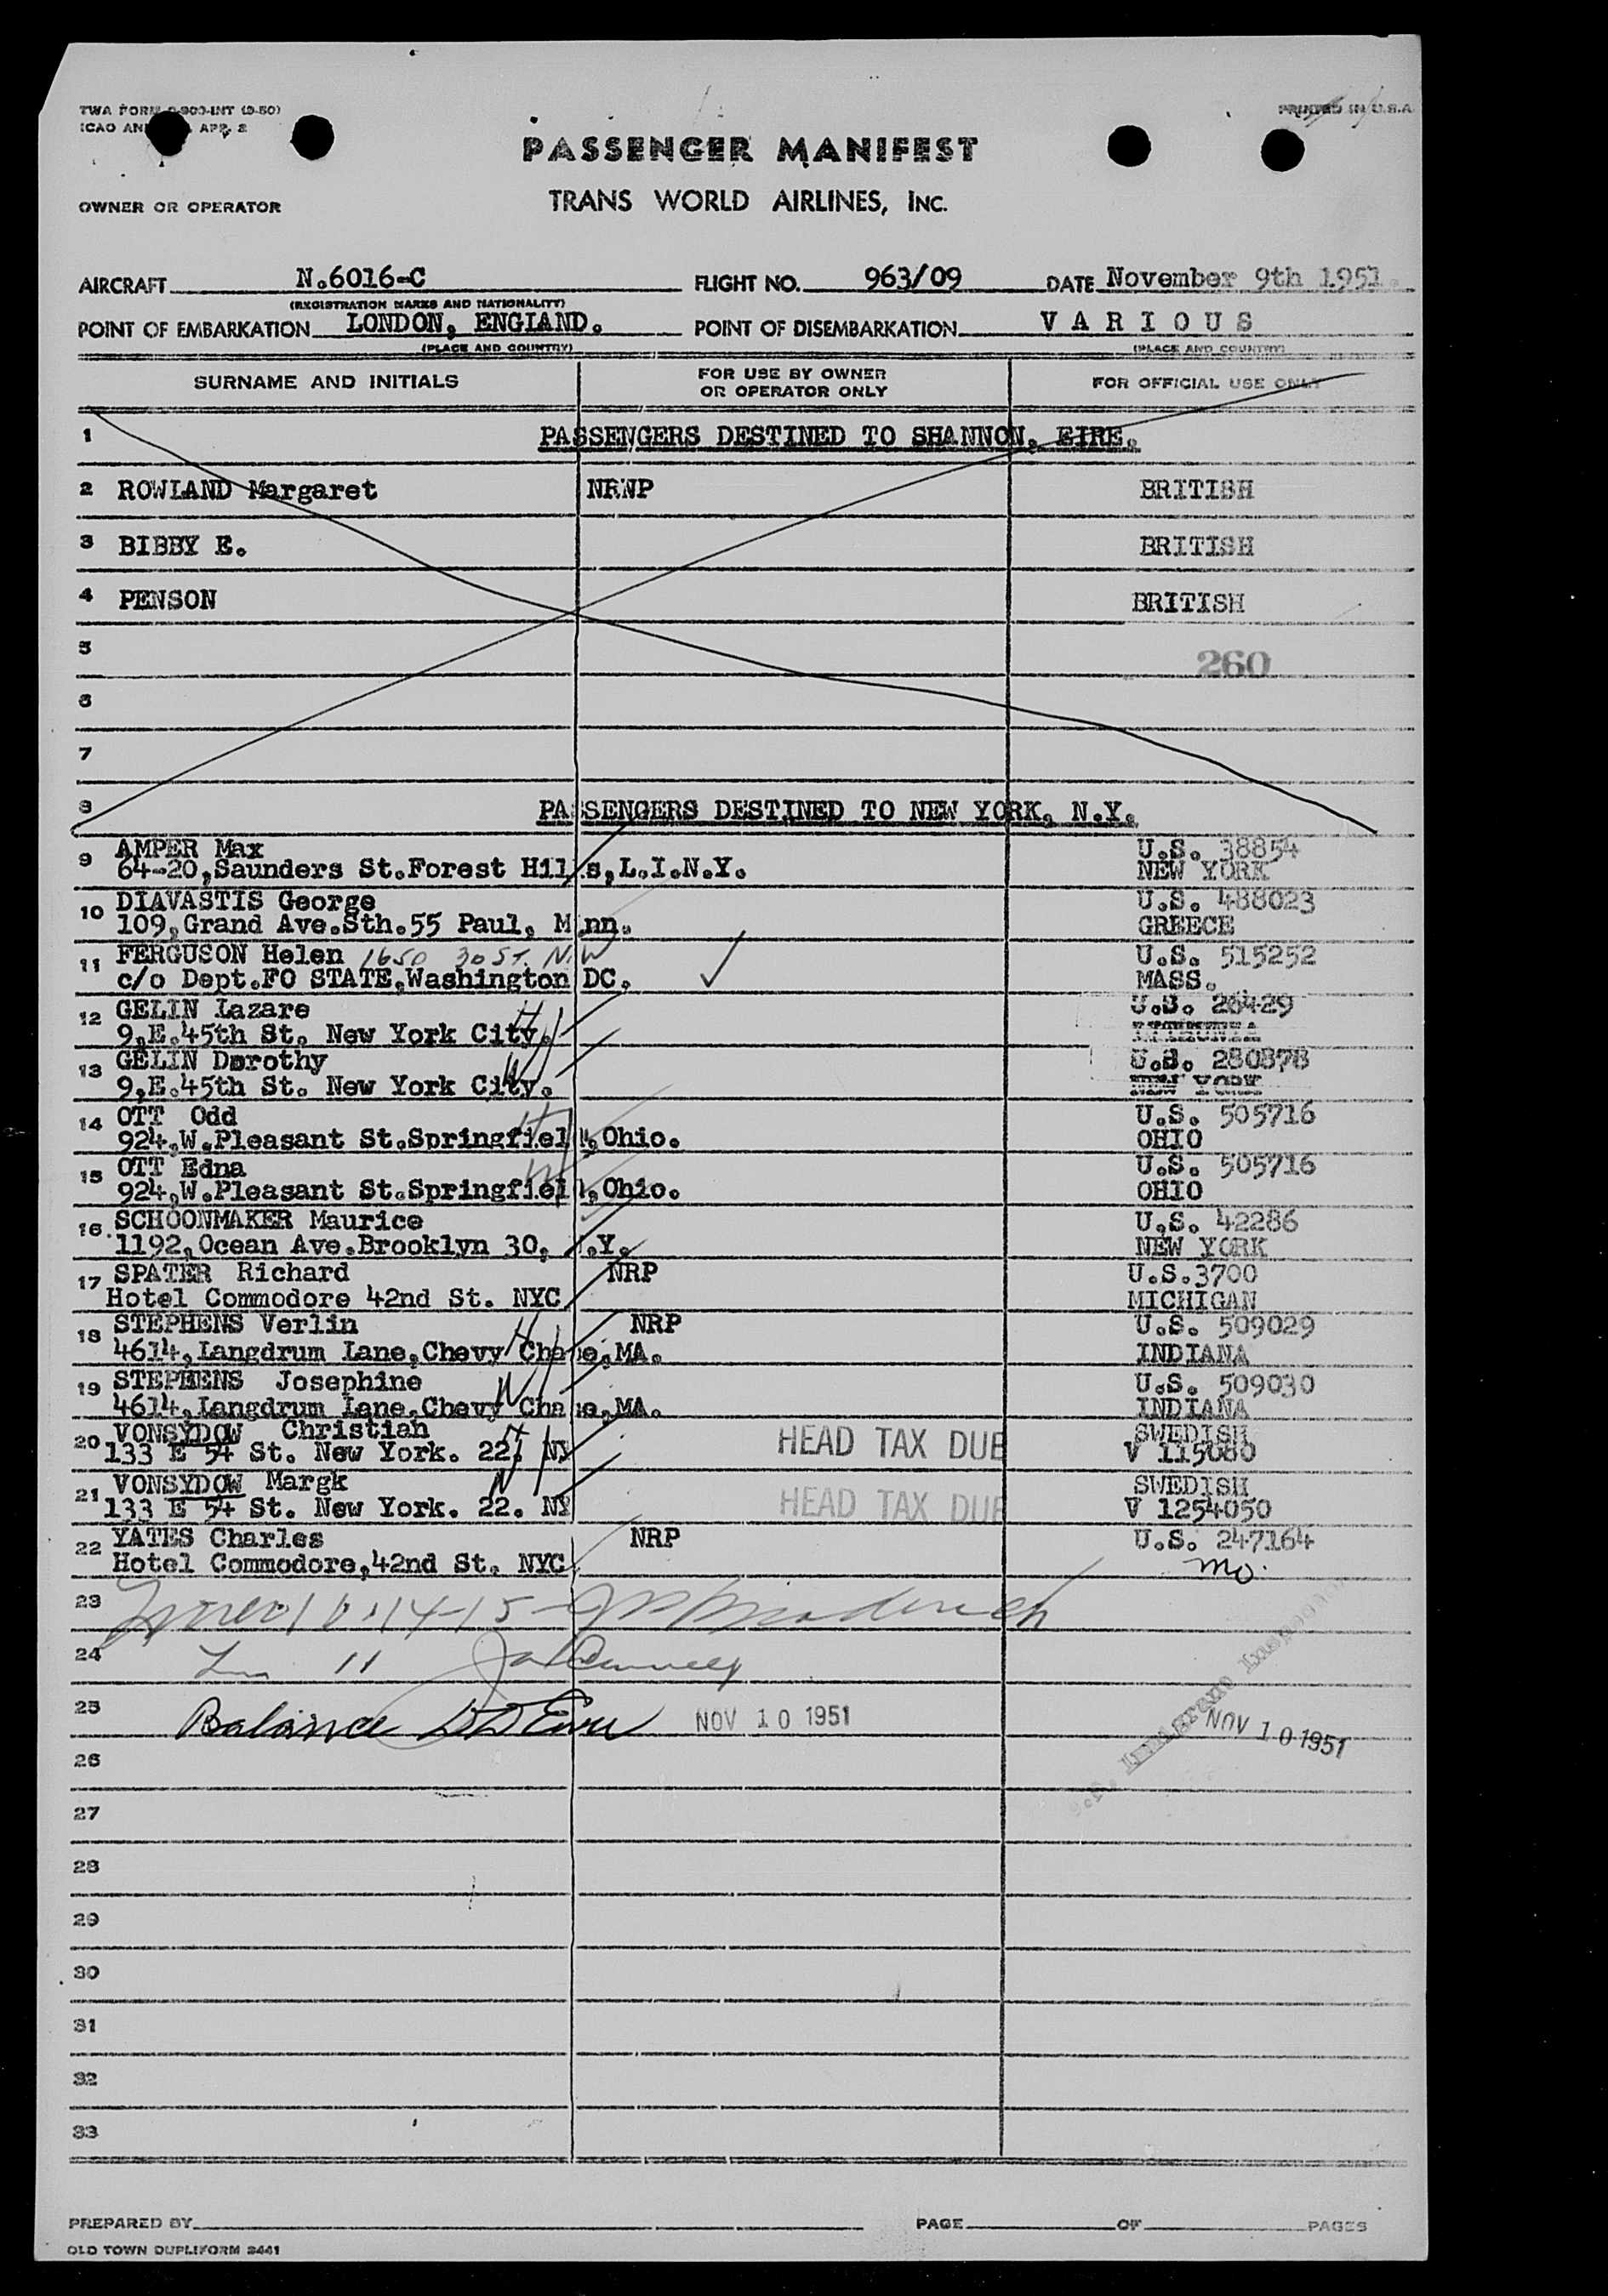 TWA FORM
ICAO
PRINTED IN U.S.A
PASSENGER MANIFEST
OWNER OR OPERATOR
TRANS WORLD AIRLINES, INC.
AIRCRAFT N.6016-C FLIGHT NO. 963/09 DATE November 9th 1951.
(REGISTRATION MARKS AND NATIONALITY)
POINT OF EMBARKATION LONDON, ENGLAND. POINT OF DISEMBARKATION V A R I O U S
(PLACE AND COUNTRY) (PLACE AND COUNTRY)
SURNAME AND INITIALS FOR USE BY OWNER OR OPERATOR ONLY FOR OFFICIAL USE ONLY
1 PASSENGERS DESTINED TO SHANNON, EIRE.
2 ROWLAND Margaret NRNP BRITISH
3 BIBBY E. BRITISH
4 PENSON BRITISH
5 260
6
7
8 PASSENGERS DESTINED TO NEW YORK, N.Y.
9 AMPER Max U.S. 38854
64-20, Saunders St. Forest Hills, L.I.N.Y. NEW YORK
10 DIAVASTIS George U.S. 488023
109, Grand Ave. Sth. 55 Paul, Minn. GREECE
11 FERGUSON Helen 1650 30 ST. N.W U.S. 515252
c/o Dept. FO STATE, Washington DC. MASS.
12 GELIN Lazare H U.S. 26429
9, E. 45th St. New York City.
13 GELIN Dorothy W U.S. 280878
9, E. 45th St. New York City. NEW YORK
14 OTT Odd H U.S. 505716
924, W. Pleasant St. Springfield, Ohio. OHIO
15 OTT Edna W U.S. 505716
924, W. Pleasant St. Springfield, Ohio. OHIO
16. SCHOONMAKER Maurice U.S. 42286
1192, Ocean Ave. Brooklyn 30, N.Y. NEW YORK
17 SPATER Richard NRP U.S. 3700
Hotel Commodore 42nd St. NYC MICHIGAN
18 STEPHENS Verlin H NRP U.S. 509029
4614, Langdrum Lane, Chevy Chase, MA. INDIANA
19 STEPHENS Josephine W U.S. 509030
4614, Langdrum Lane, Chevy Chase, MA. INDIANA
20 VONSYDOW Christian H HEAD TAX DUE SWEDISH
133 E 54 St. New York. 22. NY V 115080
21 VONSYDOW Margk W HEAD TAX DUE SWEDISH
133 E 54 St. New York. 22. NY V 1254050
22 YATES Charles NRP U.S. 247164
Hotel Commodore, 42nd St. NYC Mo.
23
24 11
25 Balance NOV 10 1951 NOV 10 1951
U.S. Immigrant Inspector
26
27
28
29
30
31
32
33
PREPARED BY PAGE OF PAGES
OLD TOWN DUPLIFORM 2441